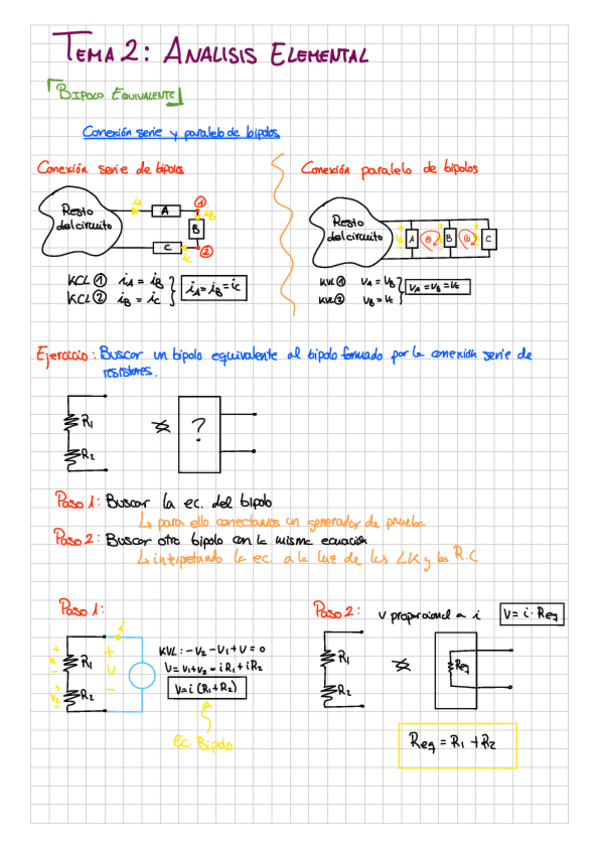 TEMA 2: ANALISIS ELEMENTAL
BIPOLO EQUIVALENTE
Conexión serie y paralelo de bipolos
Conexión serie de bipolos
Conexión paralelo de bipolos
Resto del circuito
A
B
C
1
2
Resto del circuito
A
B
C
1
2
KCL① iA = iB
KCL② iB = iC
iA = iB = iC
KVL① VA = VB
KVL② VB = VC
VA = VB = VC
Ejercicio: Buscar un bipolo equivalente al bipolo formado por la conexión serie de
resistores.
R1
R2
?
Paso 1: Buscar la ec. del bipolo
↳ para ello conectamos un generador de prueba
Paso 2: Buscar otro bipolo con la misma ecuación
↳ interpretando la ec. a la luz de las LK y las R.C
Paso 1:
i
R1
R2
+
V
-
KVL: -V2 - V1 + V = 0
V = V1 + V2 = iR1 + iR2
V = i (R1 + R2)
Ec. Bipolo
Paso 2:
V proporcional a i
V = i · Req
R1
R2
Req
Req = R1 + R2